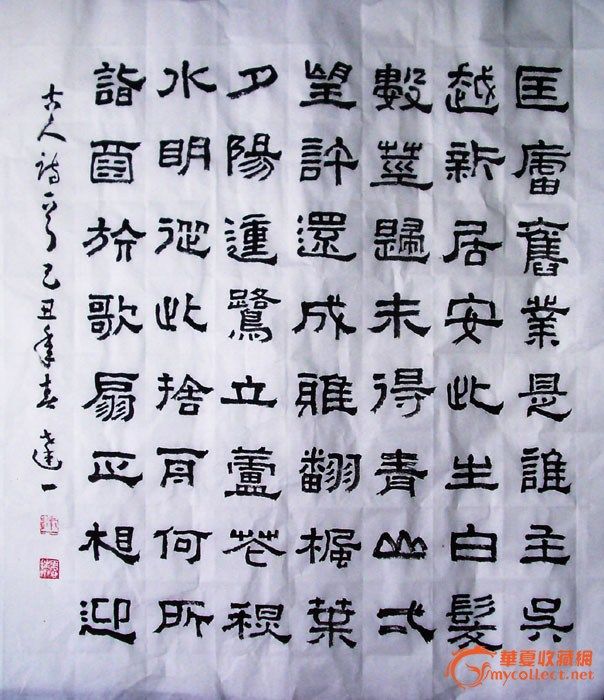 匡廬舊業是誰主吳
越新居安此生白髮
數莖歸未得青山弌
望許還成雅翻楓葉
夕陽動鷺立蘆花穐
水明從此捨舟何所
詣酉旂歌扇正相迎
古人詩一首己丑年春達一
華夏收藏網
mycollect.net